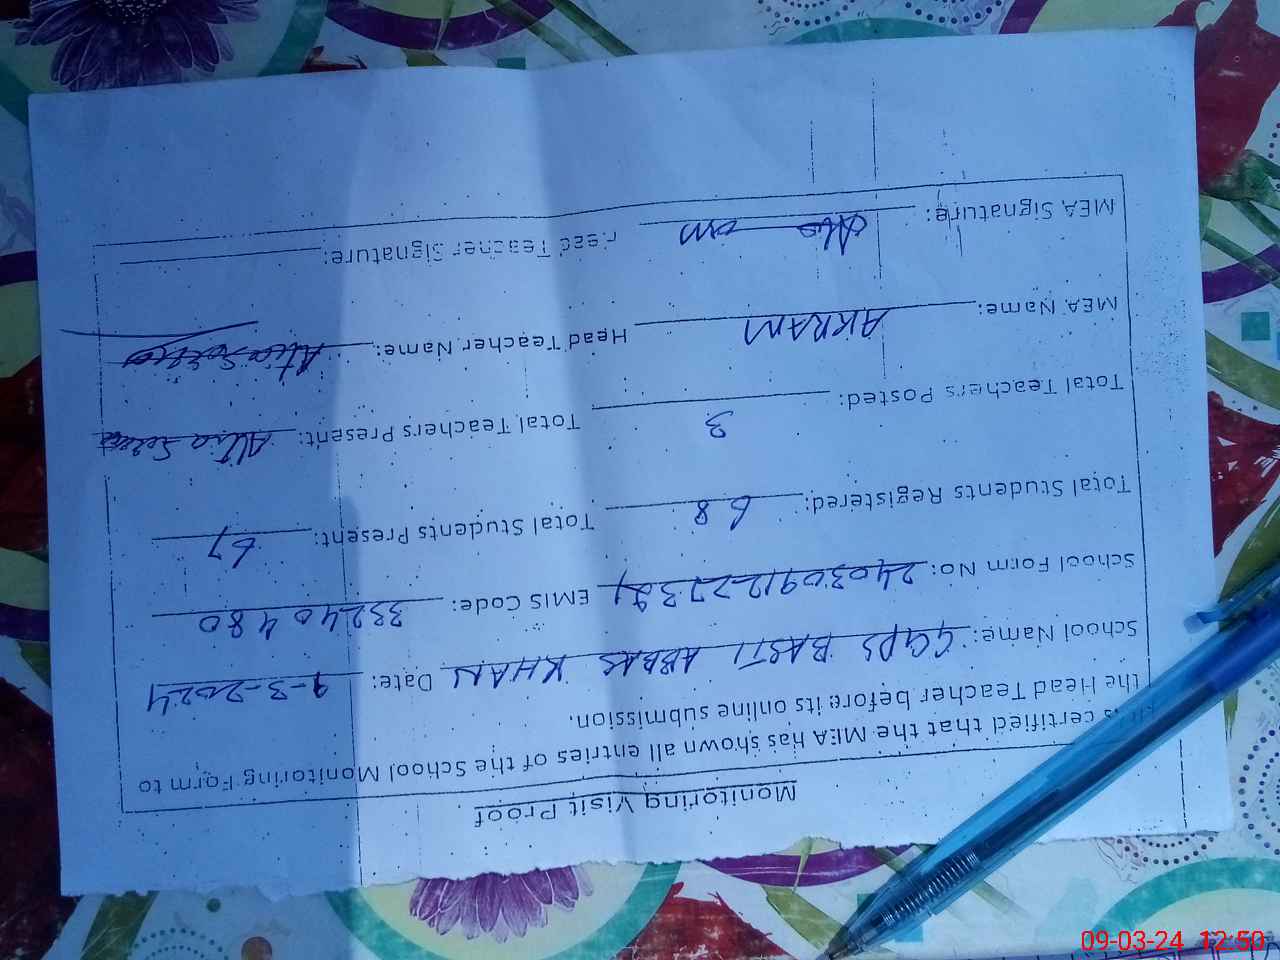 Monitoring Visit Proof
It is certified that the MEA has shown all entries of the School Monitoring Form to
the Head Teacher before its online submission.
School Name: GGPS BASTI ABBAS KHAN Date: 9-3-2024
School Form No: EMIS Code: 33240480
Total Students Registered: 68 Total Students Present: 67
Total Teachers Posted: 3 Total Teachers Present:
MEA Name: AKRAM Head Teacher Name:
MEA Signature: Head Teacher Signature:
09-03-24 12:50